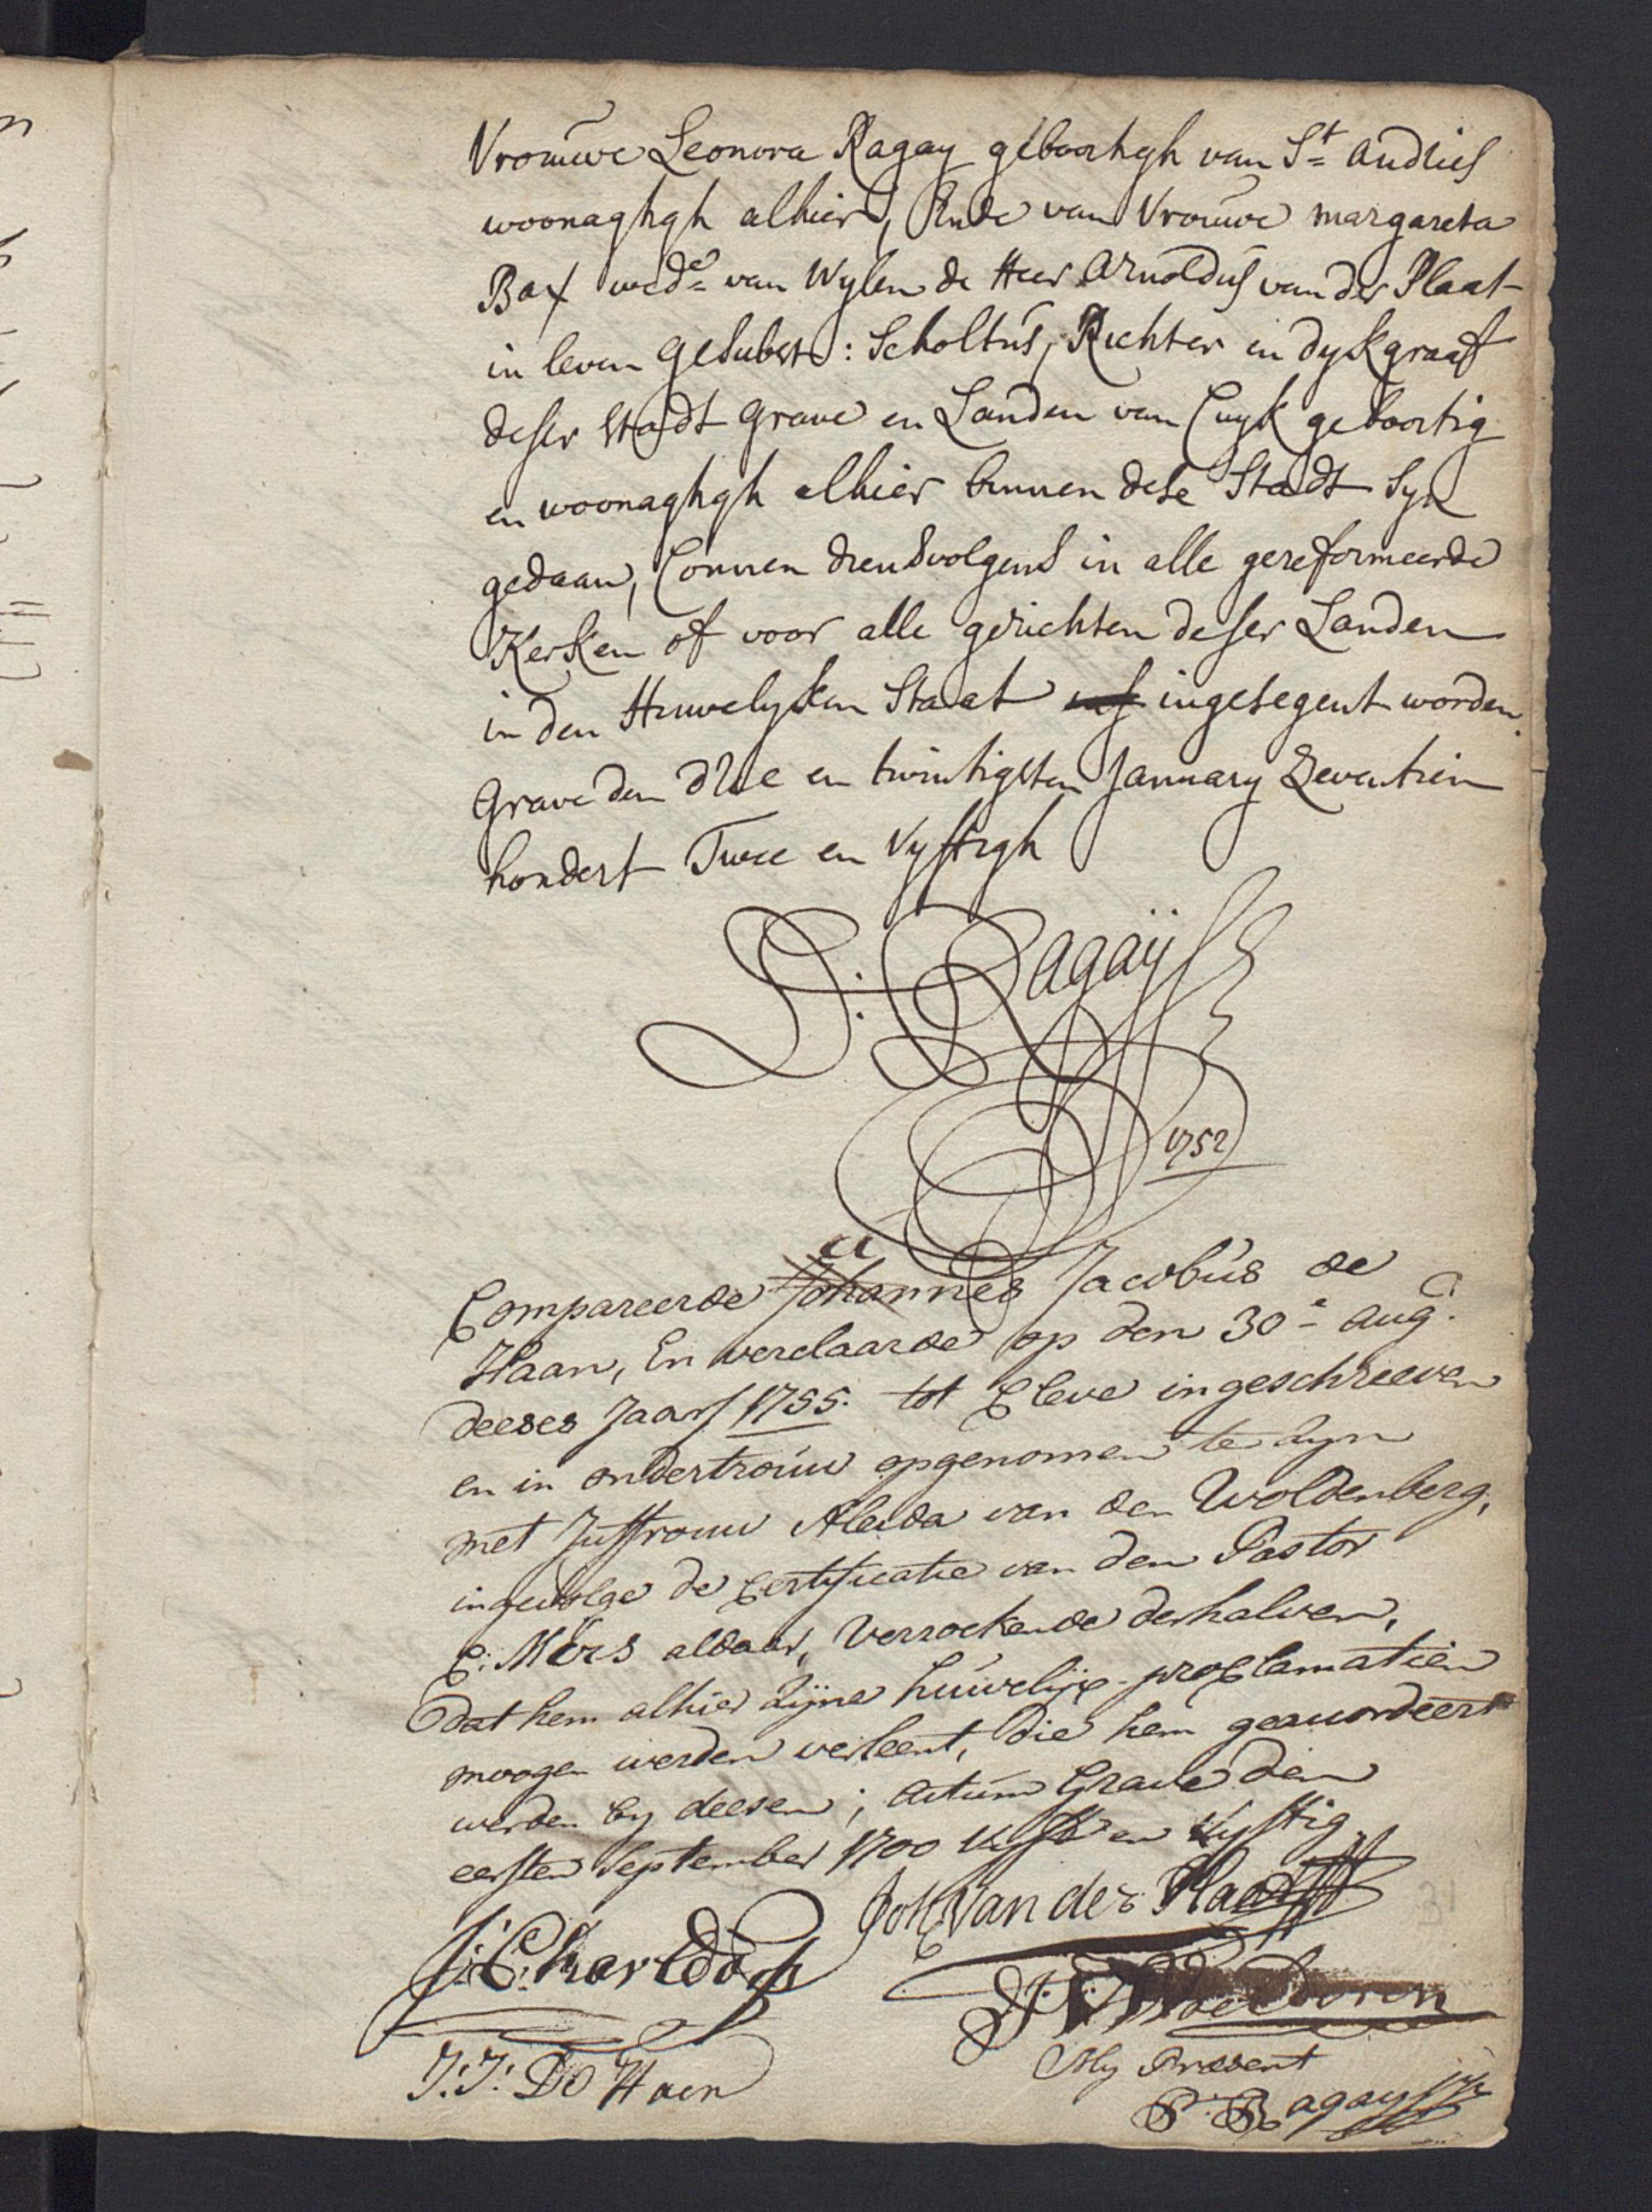 Vrouwe Leonora Ragay geboortigh van St Andries
woonaghtigh alhier, Ende van Vrouwe margareta
Bax wede van Wylen de Heer Arnoldus van der Plaat
in leven gesubst: Scholtus, Richter en dykgraaf
deser stadt Grave en Landen van Cuyk geboortig
en woonaghtigh alhier binnen dese Stadt Syn
gedaan, Connen diensvolgens in alle gereformeerde
Kerken of voor alle gerichten deser Landen
in den Huwelyken Staat ingesegent worden.
Grave den drie en twintigsten January Zeventien
hondert Twee en Vyftigh
P: Ragaÿ
1752
Compareerde Johannes Jacobus de
Haan, En verclaarde op den 30e aug:
deeses Jaars 1755. tot Cleve ingeschreeven
en in ondertrouw opgenomen te zyn
met Juffrouw Aleida van den Woldenberg,
ingevolge de Certificatie van den Pastor
C: Mörs aldaar, Verzoekende derhalven,
dat hem alhier zijne huwelijx-proclamatien
moogen werden verleent, die hem geaccordeert
werden by deesen; Actum Grave den
eersten September 1700 Vyf en Vyftig
Joh Van der Plaat
J: J: De Haen
My Present
P. Ragay